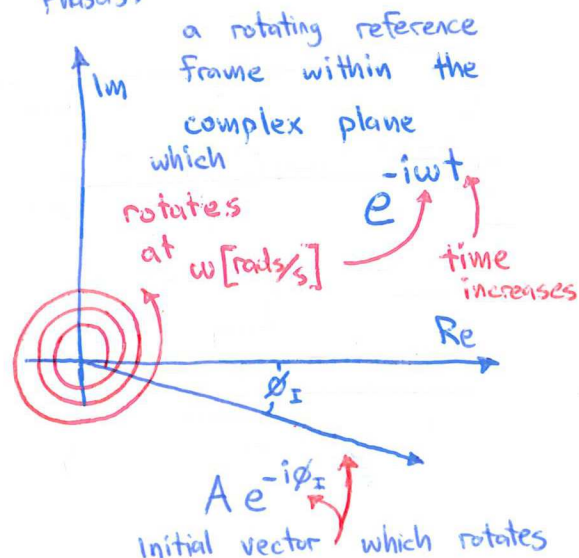 Phasors:
a rotating reference
Im frame within the
complex plane
which
e^{-iωt}
rotates
at ω [rads/s]
time
increases
Re
ϕ_I
A e^{-iϕ_I}
Initial vector which rotates